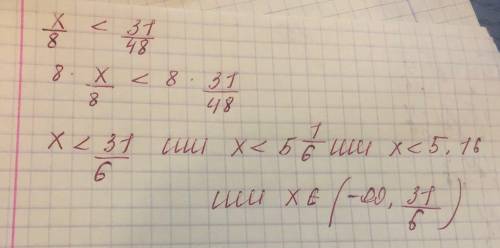 x/8 < 31/48
8 · x/8 < 8 · 31/48
x < 31/6 или x < 5 1/6 или x < 5,16
или x ∈ (-∞, 31/6)